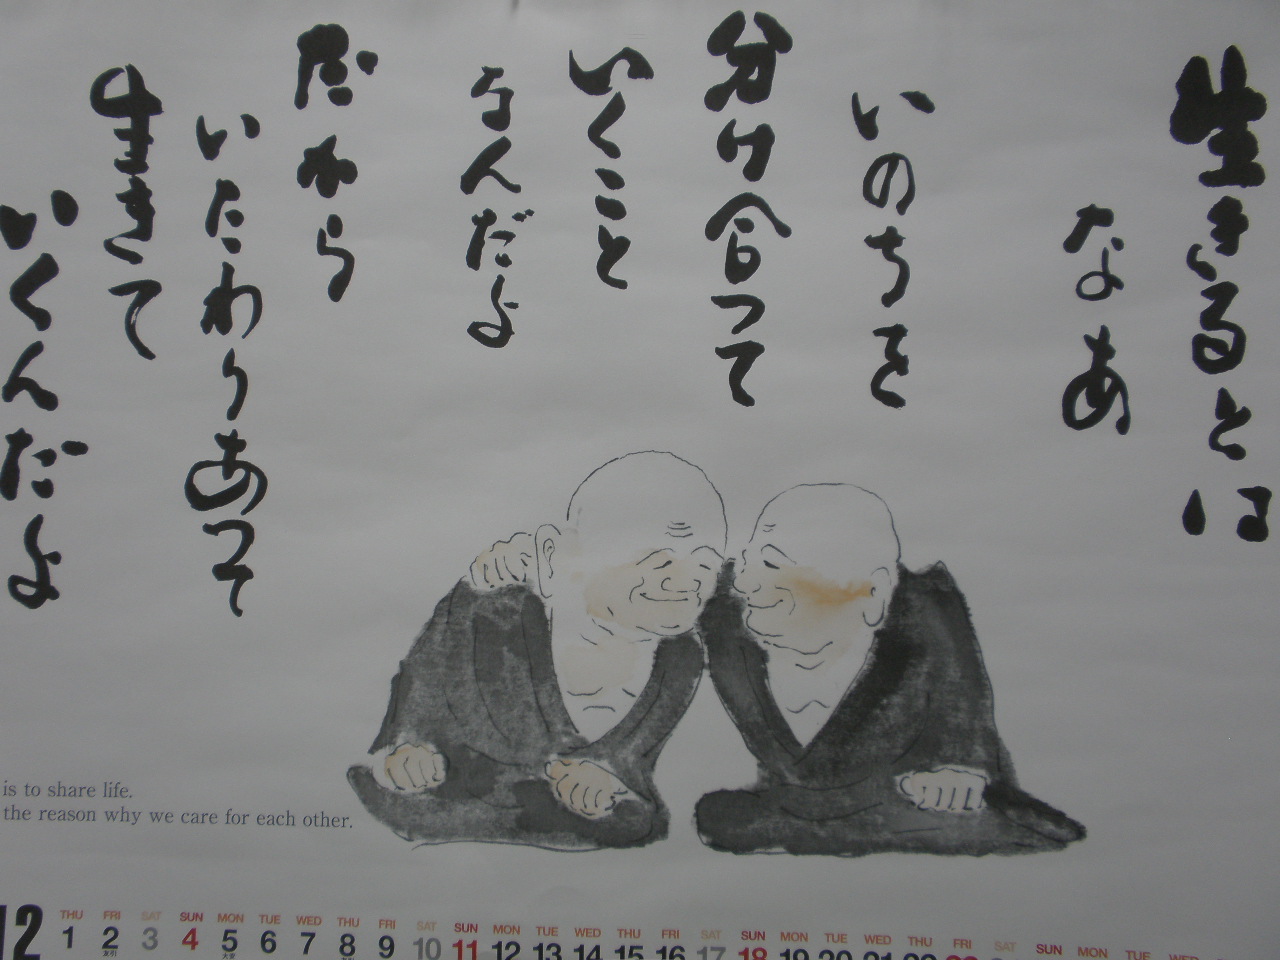 生きるとは
なあ
いのちを
分け合って
いくこと
なんだよ
だから
いたわりあって
生きて
いくんだよ
is to share life.
the reason why we care for each other.
12
THU FRI SAT SUN MON TUE WED THU FRI SAT SUN MON TUE WED THU FRI SAT SUN MON TUE WED THU FRI SAT SUN MON TUE WED
1 2 3 4 5 6 7 8 9 10 11 12 13 14 15 16 17 18 19 20 21 22 23
友引 大安